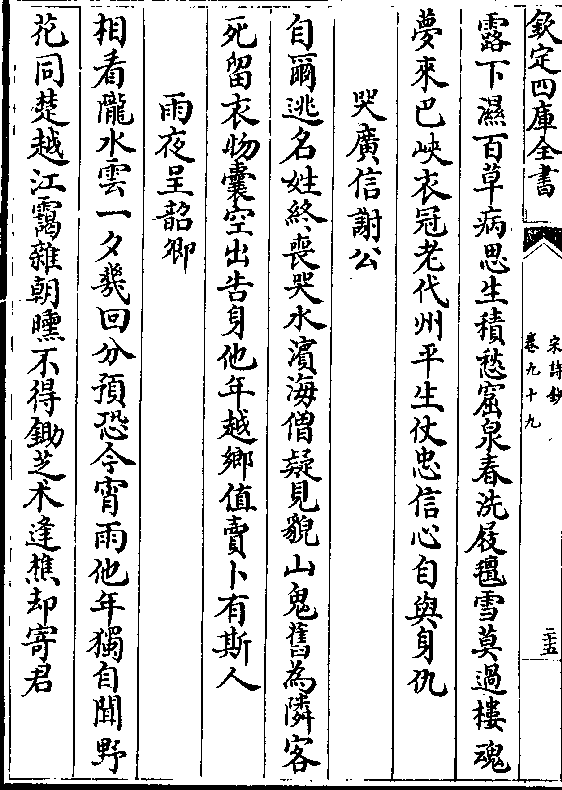 欽定四庫全書
宋詩鈔
卷九十九
二五
露下濕百草病思生積愁窟泉春洗屐氊雪莫過樓魂
夢來巴峽衣冠老代州平生仗忠信心自與身仇
哭廣信謝公
自爾逃名姓終喪哭水濱海僧疑見貌山鬼舊為隣客
死留衣物囊空出告身他年越鄉值賣卜有斯人
雨夜呈韶卿
相看隴水雲一夕幾回分預恐今宵雨他年獨自聞野
花同楚越江靄雜朝曛不得鋤芝术逢樵却寄君